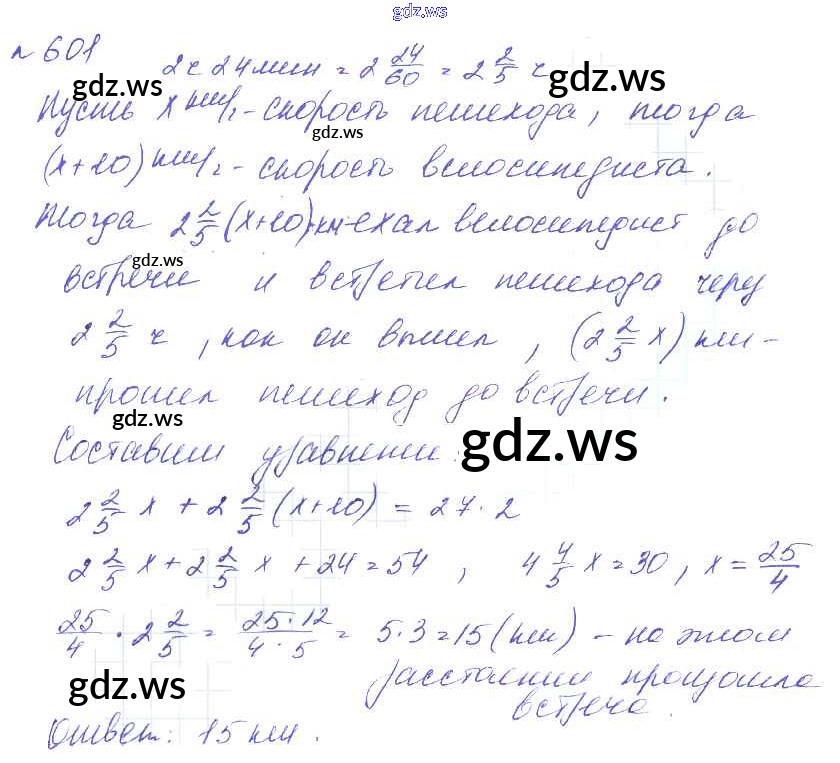 gdz.ws
№ 601
2 ч 24 мин = 2 24/60 = 2 2/5 ч
gdz.ws gdz.ws
Пусть x км/ч - скорость пешехода, тогда
gdz.ws
(x+10) км/ч - скорость велосипедиста.
Тогда 2 2/5 (x+10) км - ехал велосипедист до
gdz.ws
встречи и встретил пешехода через
2 2/5 ч, как он вышел, (2 2/5 x) км -
прошел пешеход до встречи.
gdz.ws
Составим уравнение:
gdz.ws
2 2/5 x + 2 2/5 (x+10) = 27 · 2
2 2/5 x + 2 2/5 x + 24 = 54, 4 4/5 x = 30, x = 25/4
25/4 · 2 2/5 = 25·12/4·5 = 5·3 = 15 (км) - на этом
gdz.ws
расстоянии произошла
встреча.
Ответ: 15 км.
gdz.ws